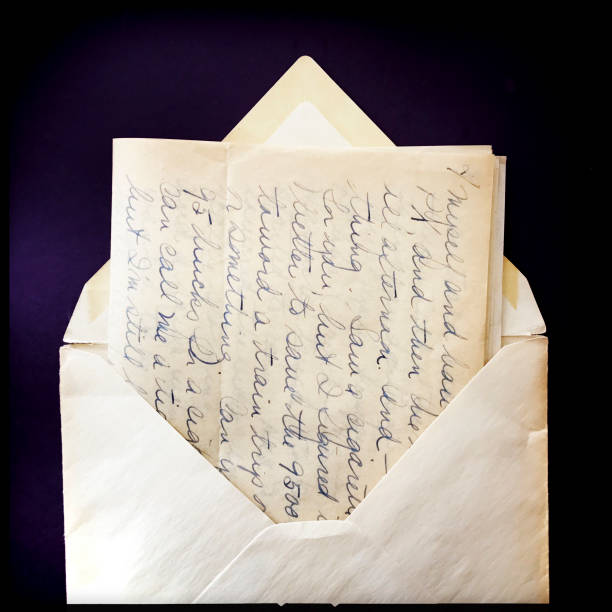 myself and
PX, and then the
afternoon. And —
thing. Saw a
for you, but I figured
better to save the 9500
toward a train trip
something. Can
95 bucks for a
can call me a
but I'm still